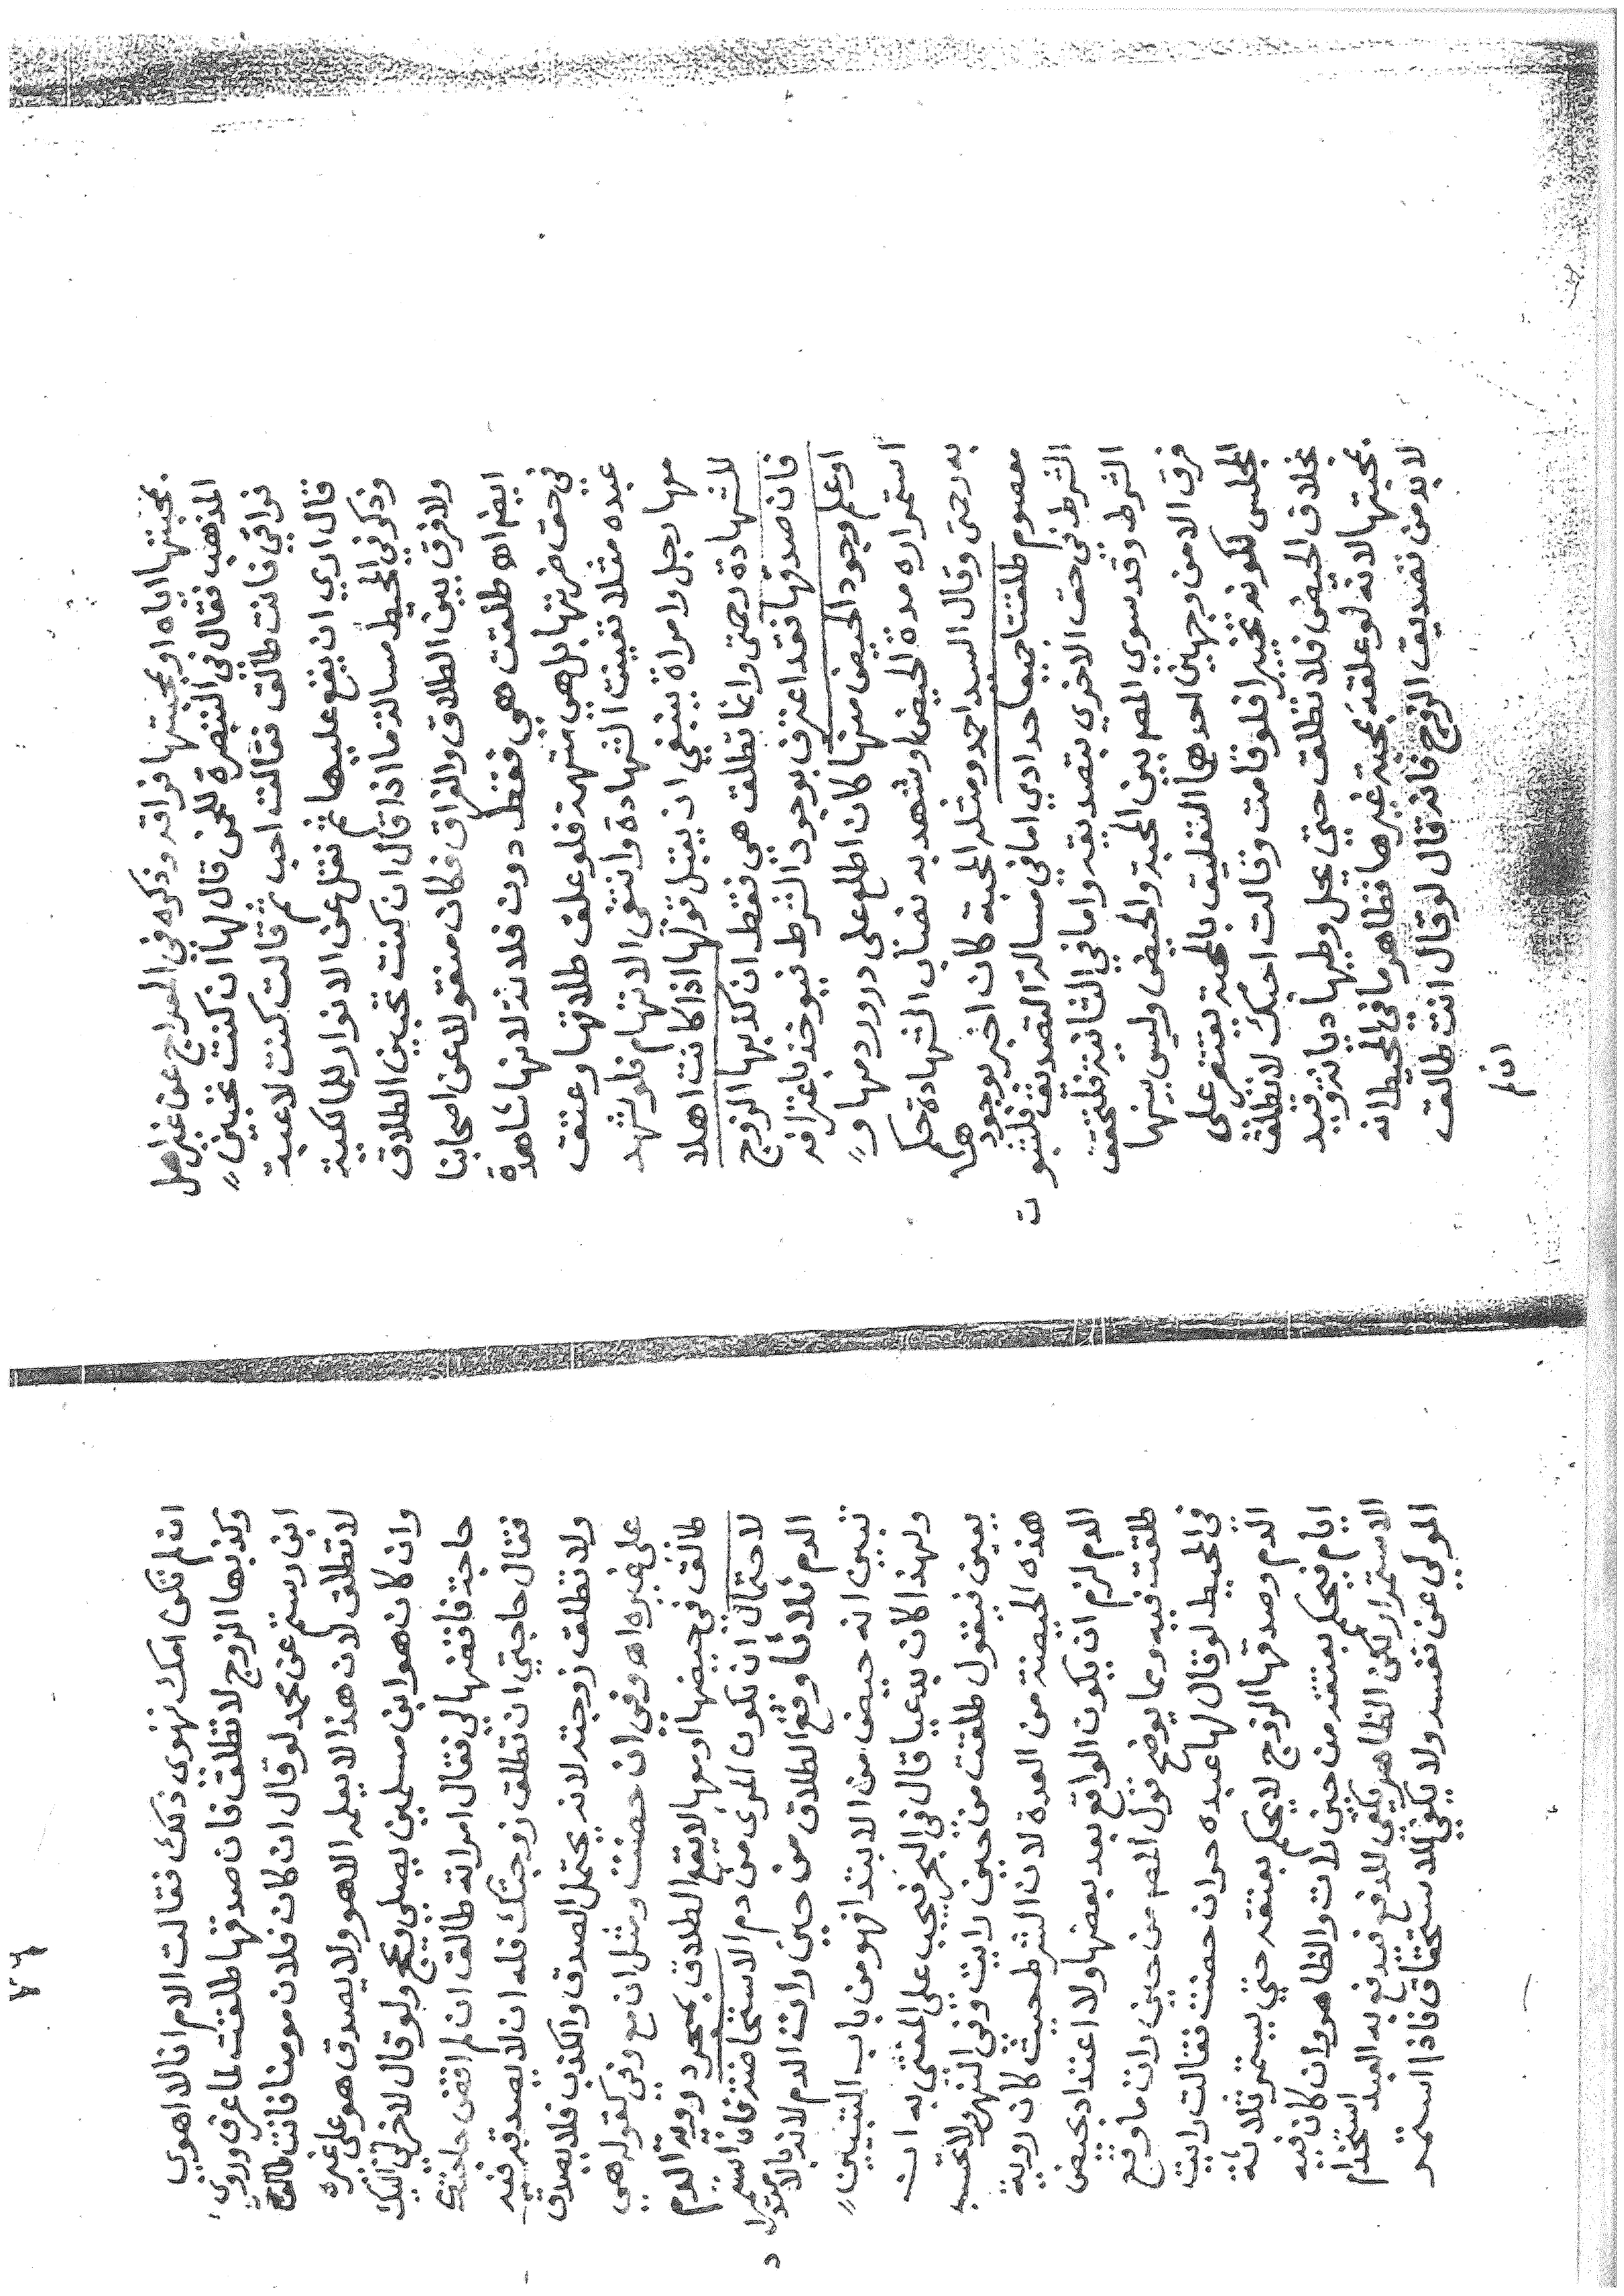 بمحبتها اياه او بمحبتها فراقه وذكره في المعراج عن غير اهل
المذهب فقال في التبصرة للخمي قال لها ان كنت تحبين
فراقي فانت طالق فقالت احب ثم قالت كنت لاعبة
قال اري ان يقع عليها ثم نقل عن الانوار للمالكية
وذكر في المحيط مسالة ما اذا قال ان كنت تحبين الطلاق
ولافرق بين الطلاق والفراق فكان منقولا عن اصحابنا
ايضا اه طلقت هي فقط دون فلانة لانها شاهدة
في حق ضرتها بل هي متهمة فلو علق طلاقها وعتق
عبده مثلا تعينت الشهادة وانتفى الاتهام فلو شهد
معها رجل وامراة ينبغي ان يقبل قولها اذا كانت اهلا
للشهادة رحمتي وانما تطلق هي فقط ان كذبها الزوج
فان صدقها فقد اعترف بوجود الشرط فيوخذ باعترافه
او علم وجود الحيض منها كان اطلع على درور دمها و
استمراره مدة الحيض او شهد به نصاب الشهادة حكم
به رحمتي وقال السيد احمد ومثله المحبة كان اخبر بوجودها
معصوم طلقتا جميعا حدادي اما في مسالة التصديق فلثبوت
الشرط في حق الاخري بتصديقه واما في الثانية فلتحقق
الشرط وقد سوي المص بين المحبة والحيض وليس بينهما
فرق الا من وجهين احدهما التعليق بالمحبة يقتصر على
المجلس لكونه تخييرا فلو قامت وقالت احبك لا تطلق
بخلاف الحيض فلا تطلق حتي يحل وطيها ديانة وقيد
بمحبتها لانه لو علقه بمحبة غيرها فظاهر ما في المحيط انه
لا بد من تصديق الزوج فانه قال لو قال انت طالق
ان لم
ان لم تكن امك تهوى ذلك فقالت الام انا لا اهوي
وكذبها الزوج لا تطلق فان صدقها طلقت لما عرف وروى
ابن رستم عن محمد لو قال ان كان فلان مومنا فانت طالق
لا تطلق لان هذا لا يعلمه الا هو ولا يصدق هو على غيره
وان كان هو ابن مسلمين يصلي ويحج ولو قال لاخر لي اليك
حاجة فاقضها لي فقال امراته طالق ان لم اقض حاجتك
فقال حاجتي ان تطلق زوجتك فله ان لا يصدقه فيه
ولا تطلق زوجته لانه يحتمل الصدق والكذب فلا يصدق
على غيره اه وفي ان حضت ومثل ان مع وفي كقوله هي
طالق في حيضها او معها لا يقع الطلاق بمجرد روية الدم
لاحتمال ان تكون المرى من دم الاستحاضة فان استمر
الدم ثلاثا وقع الطلاق من حين رات الدم لانه بالامتداد
تبين انه حيض من الابتدا فهو من باب التبيين
ولهذا كان بدعيا قال في البحر فيجب على المفتى به ان
يعين فيقول طلقت من حين رايت وفي النهر ولا تحتسب
هذه الحيضة من العدة لان الشرط حيث كان روية
الدم لزم ان يكون الواقع بعد بعضها ولا اعتداد بحيض
طلقت فيه ومما يوضح قول المص من حين رات ما وقع
في المحيط لو قال لها عبده حر ان حضت فقالت رايت
الدم وصدقها الزوج لا يحكم بعتقه حتي يستمر ثلاثة
ايام فيحكم بعتقه من حين رات والظاهر وان كان فيه
الاستمرار لكن الظاهر يكفي للدفع فيدفع به العبد استخدام
المولي عن نفسه ولا يكفي للاستحقاق فاذا استمر